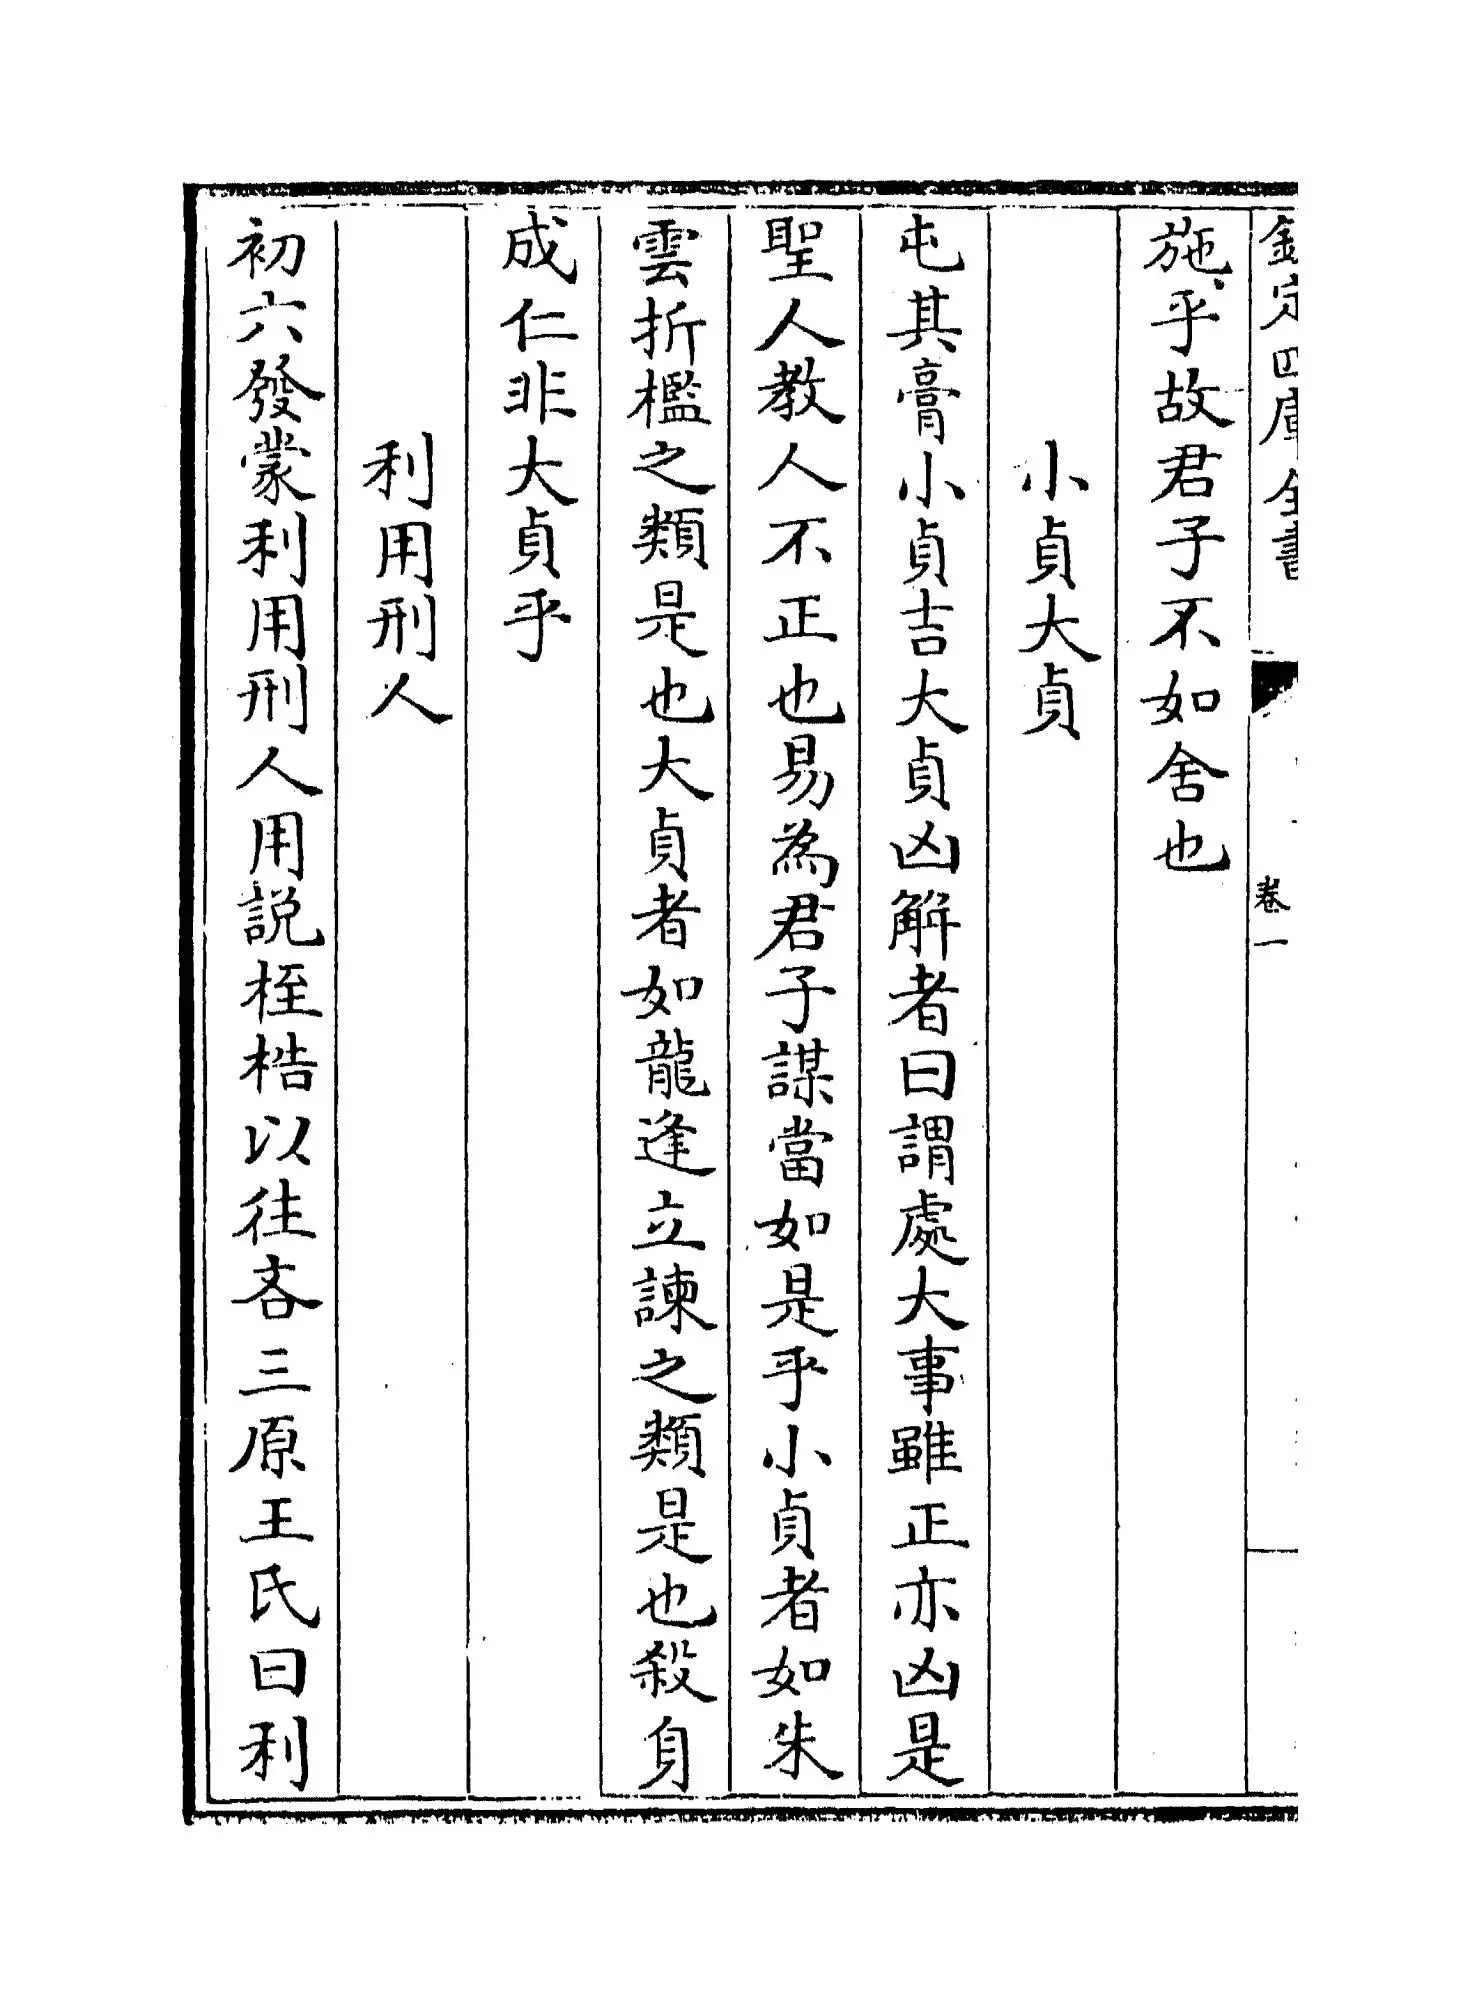 欽定四庫全書
卷一
施乎故君子不如舍也
小貞大貞
屯其膏小貞吉大貞凶解者曰謂處大事雖正亦凶是
聖人教人不正也易為君子謀當如是乎小貞者如朱
雲折檻之類是也大貞者如龍逢立諫之類是也殺身
成仁非大貞乎
利用刑人
初六發蒙利用刑人用說桎梏以往吝三原王氏曰利